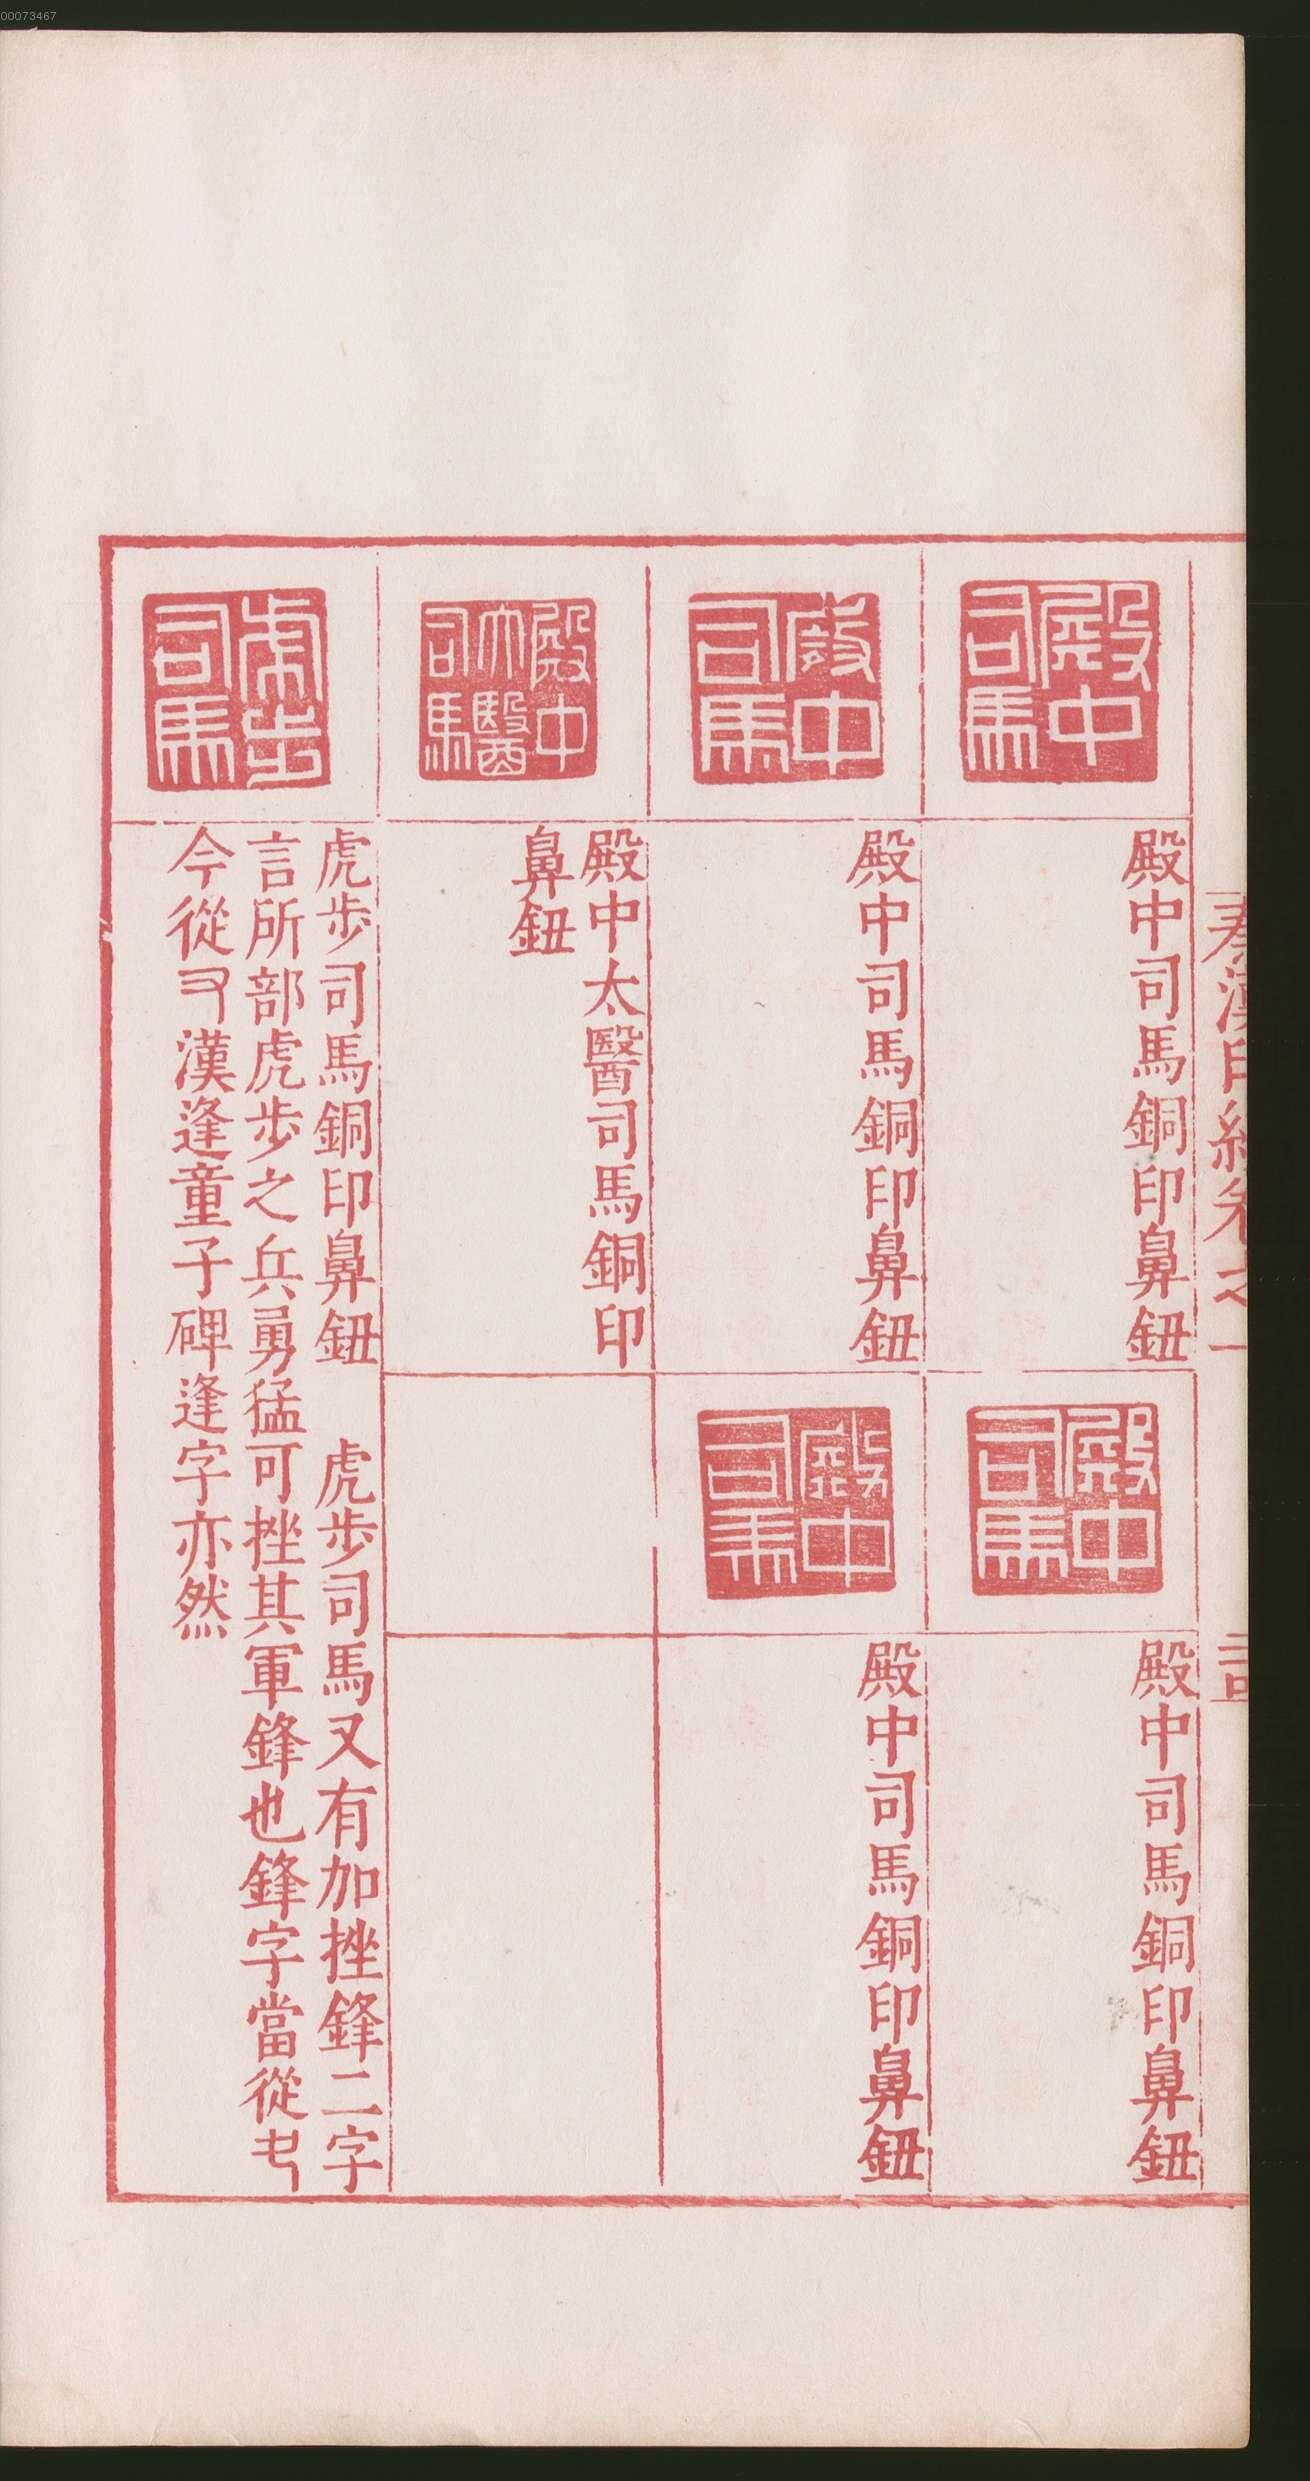 00073467
秦漢印統卷之一
殿中司馬
殿中司馬銅印鼻鈕
殿中司馬
殿中司馬銅印鼻鈕
殿中司馬
殿中司馬銅印鼻鈕
殿中司馬
殿中司馬銅印鼻鈕
殿中太醫司馬
殿中太醫司馬銅印
鼻鈕
虎步司馬
虎步司馬銅印鼻鈕 虎步司馬又有加挫鋒二字
言所部虎步之兵勇猛可挫其軍鋒也鋒字當從
今從 漢逢童子碑逢字亦然